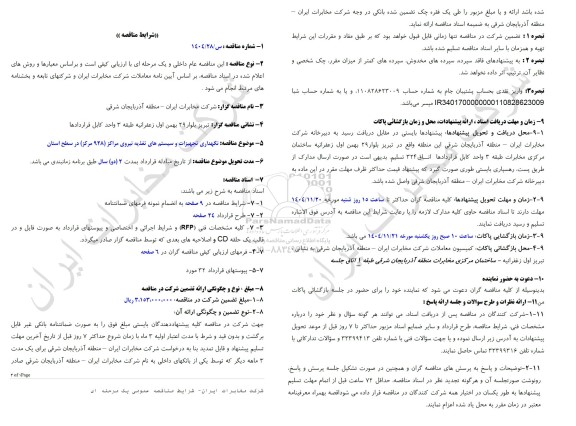 «شرایط مناقصه»
۱- شماره مناقصه: س/۱۴۰۴/۲۸
۲- نوع مناقصه: این مناقصه عام داخلی و یک مرحله ای با ارزیابی کیفی است و براساس معیارها و روش های
اعلام شده در اسناد مناقصه، بر اساس آیین نامه معاملات شرکت مخابرات ایران و شرکتهای تابعه و بخشنامه
های مرتبط انجام می شود.
۳- نام مناقصه گزار: شرکت مخابرات ایران - منطقه آذربایجان شرقی
۴- نشانی مناقصه گزار: تبریز بلوار ۲۹ بهمن اول زعفرانیه طبقه ۳ واحد کابل قراردادها
۵- موضوع مناقصه: نگهداری تجهیزات و سیستم های تغذیه نیروی مراکز (۹۴۸ مرکز) در سطح استان
۶- مدت تحویل موضوع مناقصه: از تاریخ مبادله قرارداد بمدت ۲ (دو) سال طبق برنامه زمانبندی می باشد.
۷- اسناد مناقصه:
اسناد مناقصه به شرح زیر می باشند:
۷-۱- شرایط مناقصه در ۹ صفحه به انضمام نمونه فرمهای ضمانتنامه
۷-۲- طرح قرارداد ۲۴ صفحه
۷-۳- کلیه مشخصات فنی (RFP) و شرایط اجرائی و اختصاصی و پیوستهای قرارداد به صورت فایل و در
قالب یک حلقه CD و اصلاحیه های بعدی که توسط مناقصه گزار صادر میگردد.
۷-۴- فرمهای ارزیابی کیفی مناقصه گران در ۶ صفحه
۷-۵- پیوستهای قرارداد ۳۲ مورد
۸- مبلغ، نوع و چگونگی ارائه تضمین شرکت در مناقصه
۸-۱- مبلغ تضمین شرکت در مناقصه: ۳،۱۵۳،۰۰۰،۰۰۰ ریال
۸-۲- نوع تضمین و چگونگی ارائه آن:
جهت شرکت در مناقصه کلیه پیشنهاددهندگان بایستی مبلغ فوق را به صورت ضمانتنامه بانکی غیر قابل
برگشت و بدون قید و شرط با مدت اعتبار اولیه ۳ ماه با زمان شروع حداکثر ۷ روز قبل از تاریخ آخرین مهلت
تسلیم پیشنهاد و قابل تمدید بنا به درخواست شرکت مخابرات ایران - منطقه آذربایجان شرقی برای یک مدت
۳ ماهه دیگر که توسط یکی از بانکهای داخلی به نام شرکت مخابرات ایران - منطقه آذربایجان شرقی صادر
شرکت مخابرات ایران- شرایط مناقصه عمومی یک مرحله ای
شده باشد ارائه و یا مبلغ مزبور را طی یک فقره چک تضمین شده بانکی در وجه شرکت مخابرات ایران -
منطقه آذربایجان شرقی به ضمیمه اسناد مناقصه ارائه نمایند.
تبصره ۱: تضمین شرکت در مناقصه تنها زمانی قابل قبول خواهد بود که بر طبق مفاد و مقررات این شرایط
تهیه و همزمان با سایر اسناد مناقصه تسلیم شده باشد.
تبصره ۲: به پیشنهادهای فاقد سپرده، سپرده های مخدوش، سپرده های کمتر از میزان مقرر، چک شخصی و
نظایر آن، ترتیب اثر داده نخواهد شد.
تبصره ۳: واریز نقدی بحساب پشتیبان جام به شماره حساب ۱۱۰۸۲۸۶۲۳۰۰۹ و یا به شماره حساب شبا
IR340170000000110828623009 میسر می‌باشد.
۹- زمان و مهلت دریافت اسناد، ارائه پیشنهادات، محل و زمان بازگشائی پاکات
۹-۱- محل دریافت و تحویل پیشنهادها: پیشنهادها بایستی در مقابل دریافت رسید به دبیرخانه شرکت
مخابرات ایران - منطقه آذربایجان شرقی این منطقه واقع در تبریز بلوار ۲۹ بهمن اول زعفرانیه ساختمان
مرکزی مخابرات طبقه ۳ واحد کابل قراردادها اتاق ۳۲۴ تسلیم بدیهی است در صورت ارسال مدارک از
طریق پست، رهسپاری بایستی طوری صورت گیرد که پیشنهاد قیمت حداکثر ظرف مهلت مقرر در این ماده به
دبیرخانه شرکت مخابرات ایران - منطقه آذربایجان شرقی واصل شده باشد.
۹-۲- زمان و مهلت تحویل پیشنهادها: کلیه مناقصه گران حداکثر تا ساعت ۱۵ روز شنبه مورخه ۱۴۰۴/۱۱/۲۰
مهلت دارند تا اسناد مناقصه حاوی کلیه مدارک لازمه را با رعایت شرایط این مناقصه به آدرس فوق الاشاره
تسلیم و رسید دریافت نمایند.
۹-۳- زمان بازگشایی پاکات: ساعت ۱۰ صبح روز یکشنبه مورخه ۱۴۰۴/۱۱/۲۱ می باشد.
۹-۴- محل بازگشائی پاکات: کمیسیون معاملات شرکت مخابرات ایران - منطقه آذربایجان شرقی به نشانی
تبریز اول زعفرانیه - ساختمان مرکزی مخابرات منطقه آذربایجان شرقی طبقه ۱ اتاق جلسه
۱۰- دعوت به حضور نماینده
بدینوسیله از کلیه مناقصه گران دعوت می شود که نماینده خود را برای حضور در جلسه بازگشائی پاکات
۱۱- ارائه نظرات و طرح سوالات و جلسه ارائه پاسخ:
۱۱-۱- شرکت کنندگان در مناقصه پس از دریافت اسناد، می توانند هر گونه سؤال و نظر خود را درباره
مشخصات فنی، شرایط مناقصه، طرح قرارداد و سایر ضمایم اسناد مزبور حداکثر تا ۷ روز قبل از موعد تحویل
پیشنهادات به آدرس زیر ارسال نموده و یا جهت سؤالات فنی با شماره تلفن ۳۳۳۹۹۴۱۳ و سؤالات تدارکاتی با
شماره تلفن ۳۳۳۹۹۳۱۶ تماس حاصل نمایند.
۱۱-۲- توضیحات و پاسخ به پرسش های مناقصه گران و همچنین در صورت تشکیل جلسه پرسش و پاسخ،
رونوشت صورتجلسه آن و هرگونه تجدید نظر در اسناد مناقصه، حداقل ۷۲ ساعت قبل از اتمام مهلت تسلیم
پیشنهادها به طور یکسان در اختیار همه شرکت کنندگان در مناقصه قرار داده می شود مناقصه بهمراه معرفینامه
معتبر در زمان مقرر به محل یاد شده اعزام نمایند.